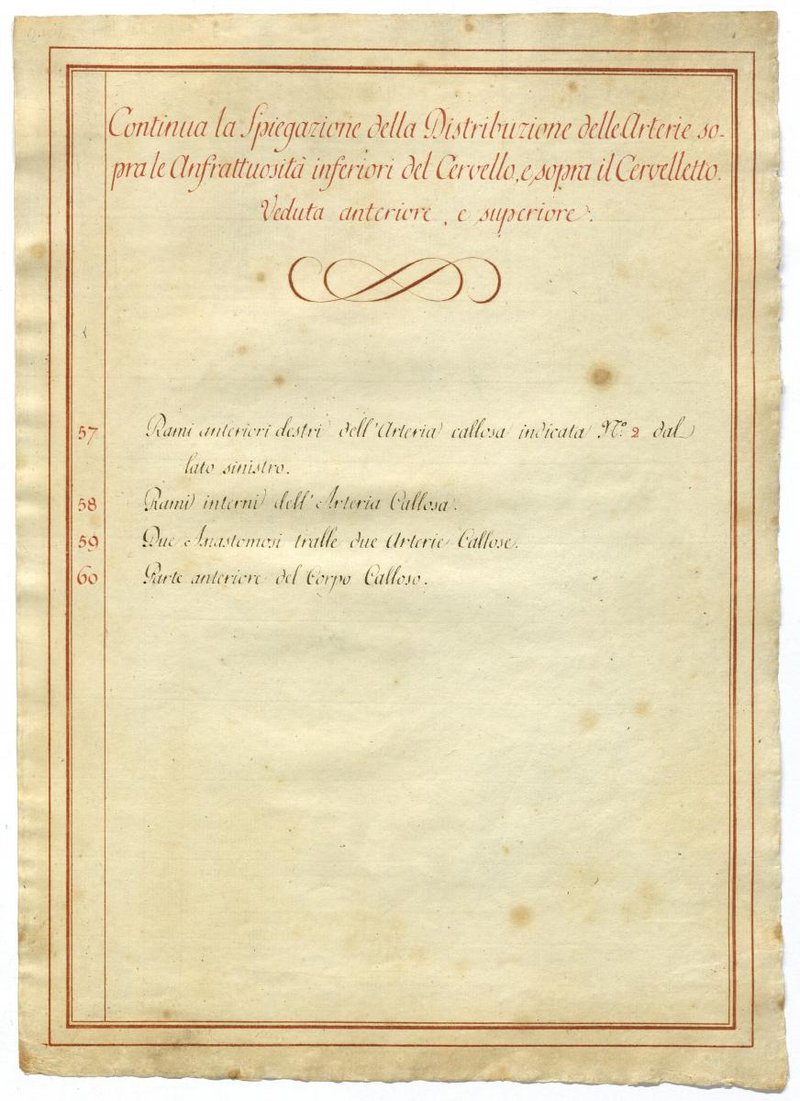 Continua la Spiegazione della Distribuzione delle Arterie so-
pra le Anfrattuosità inferiori del Cervello, e sopra il Cervelletto.
Veduta anteriore, e superiore.
57 Rami anteriori destri dell'Arteria callosa indicata N.º 2 dal
lato sinistro.
58 Rami interni dell'Arteria Callosa.
59 Due Anastomosi tralle due Arterie Callose.
60 Parte anteriore del Corpo Calloso.